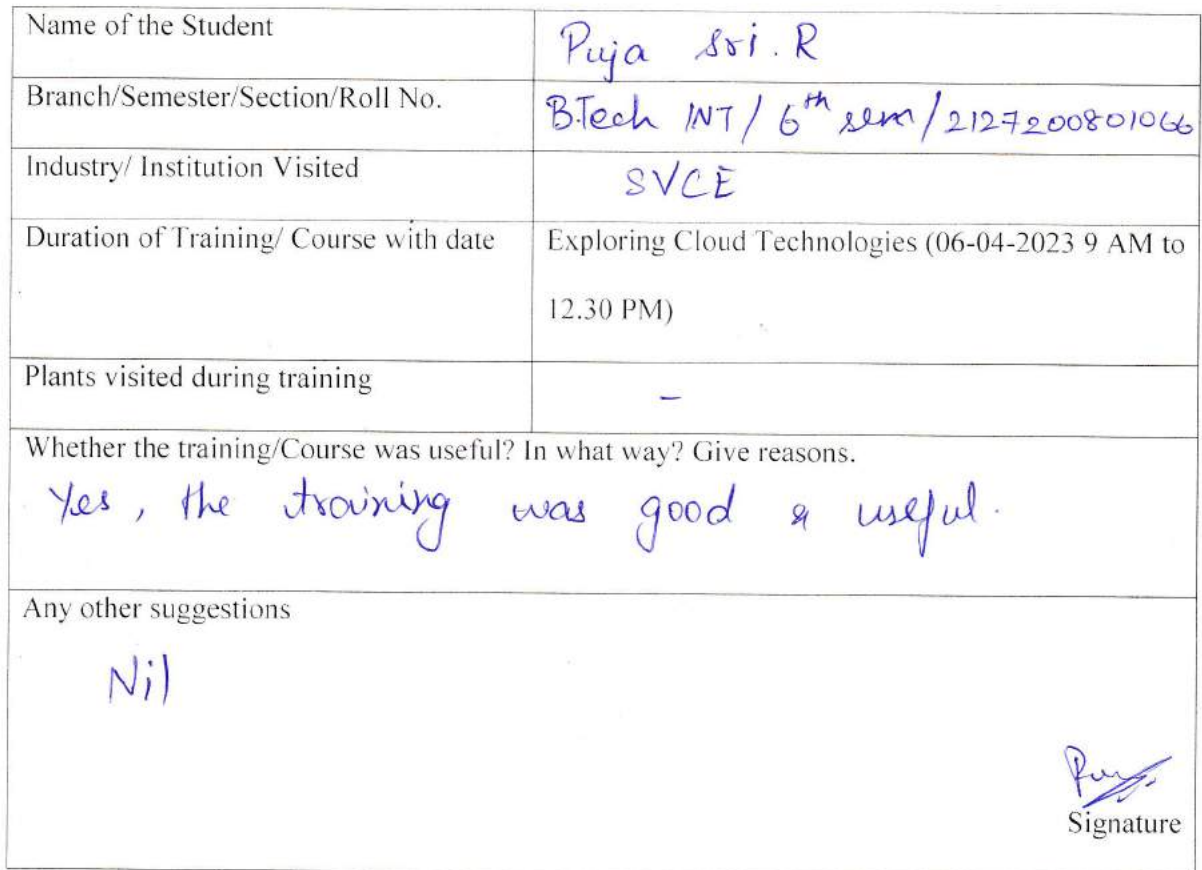 Name of the Student Puja Sri. R
Branch/Semester/Section/Roll No. B.Tech INT / 6th sem / 2127200801066
Industry/ Institution Visited SVCE
Duration of Training/ Course with date Exploring Cloud Technologies (06-04-2023 9 AM to
12.30 PM)
Plants visited during training -
Whether the training/Course was useful? In what way? Give reasons.
Yes, the training was good & useful.
Any other suggestions
Nil
Signature